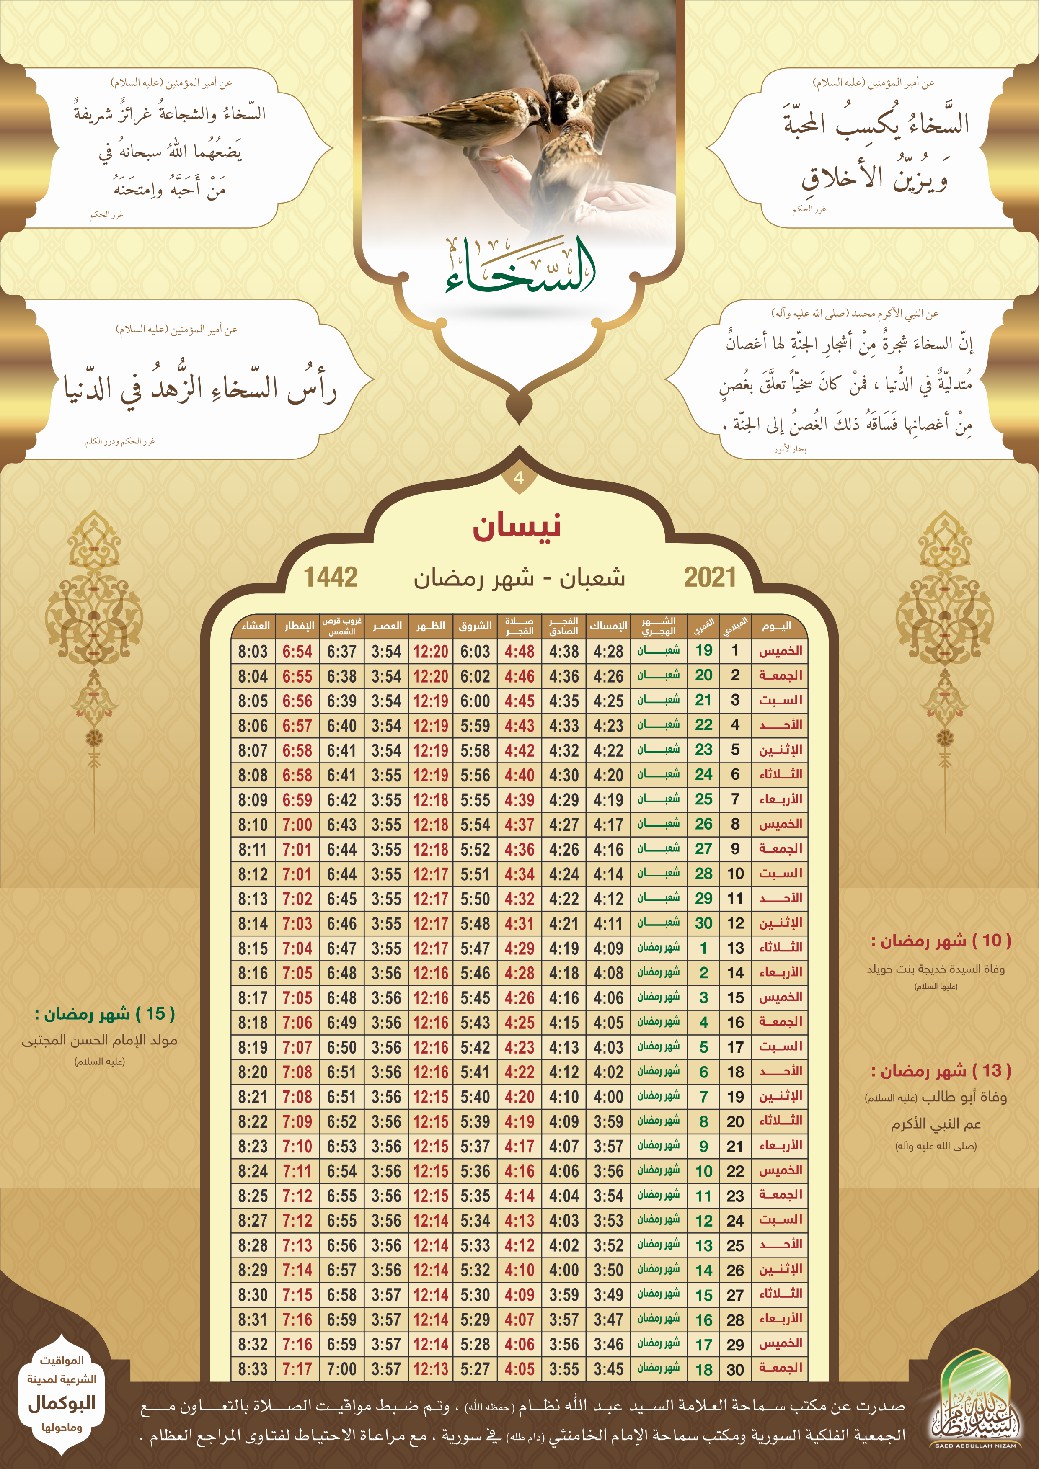 عن أمير المؤمنين (عليه السلام)
السَّخاءُ يُكسِبُ المحبّةَ
وَيُزيّنُ الأخلاقِ
غرر الحكم
عن أمير المؤمنين (عليه السلام)
السّخاءُ والشجاعةُ غرائزٌ شريفةٌ
يَضعُهُما اللهُ سبحانهُ في
مَنْ أَحَبَّهُ وامتحَنَهُ
غرر الحكم
السخاء
عن النبي الأكرم محمد (صلى الله عليه وآله)
إنّ السخاءَ شجرةٌ مِنْ أشجارِ الجنّة لها أغصانٌ
مُتدليّةٌ في الدُّنيا ، فمنْ كانَ سخيّاً تعلّقَ بغُصنٍ
مِنْ أغصانِها فَسَاقَهُ ذلكَ الغُصنُ إلى الجنّة .
بحار الأنور
عن أمير المؤمنين (عليه السلام)
رأسُ السّخاءِ الزُّهدُ في الدّنيا
غرر الحكم ودرر الكلم
4
نيسان
2021 شعبان - شهر رمضان 1442
اليـوم الميلادي القمري الشـهر الهجري الإمساك الفجـر الصادق صـلاة الفجـر الشروق الظـهر العصـر غروب قرص الشمس الإفطار العشاء
الخميس 1 19 شعبــان 4:28 4:38 4:48 6:03 12:20 3:54 6:37 6:54 8:03
الجمعـة 2 20 شعبــان 4:26 4:36 4:46 6:02 12:20 3:54 6:38 6:55 8:04
السـبت 3 21 شعبــان 4:25 4:35 4:45 6:00 12:19 3:54 6:39 6:56 8:05
الأحــد 4 22 شعبــان 4:23 4:33 4:43 5:59 12:19 3:54 6:40 6:57 8:06
الإثنـين 5 23 شعبــان 4:22 4:32 4:42 5:58 12:19 3:54 6:41 6:58 8:07
الثـلاثاء 6 24 شعبــان 4:20 4:30 4:40 5:56 12:19 3:55 6:41 6:58 8:08
الأربعـاء 7 25 شعبــان 4:19 4:29 4:39 5:55 12:18 3:55 6:42 6:59 8:09
الخميس 8 26 شعبــان 4:17 4:27 4:37 5:54 12:18 3:55 6:43 7:00 8:10
الجمعـة 9 27 شعبــان 4:16 4:26 4:36 5:52 12:18 3:55 6:44 7:01 8:11
السـبت 10 28 شعبــان 4:14 4:24 4:34 5:51 12:17 3:55 6:44 7:01 8:12
الأحــد 11 29 شعبــان 4:12 4:22 4:32 5:50 12:17 3:55 6:45 7:02 8:13
الإثنـين 12 30 شعبــان 4:11 4:21 4:31 5:48 12:17 3:55 6:46 7:03 8:14
الثـلاثاء 13 1 شهر رمضان 4:09 4:19 4:29 5:47 12:17 3:55 6:47 7:04 8:15
الأربعـاء 14 2 شهر رمضان 4:08 4:18 4:28 5:46 12:16 3:56 6:48 7:05 8:16
الخميس 15 3 شهر رمضان 4:06 4:16 4:26 5:45 12:16 3:56 6:48 7:05 8:17
الجمعـة 16 4 شهر رمضان 4:05 4:15 4:25 5:43 12:16 3:56 6:49 7:06 8:18
السـبت 17 5 شهر رمضان 4:03 4:13 4:23 5:42 12:16 3:56 6:50 7:07 8:19
الأحــد 18 6 شهر رمضان 4:02 4:12 4:22 5:41 12:16 3:56 6:51 7:08 8:20
الإثنـين 19 7 شهر رمضان 4:00 4:10 4:20 5:40 12:15 3:56 6:51 7:08 8:21
الثـلاثاء 20 8 شهر رمضان 3:59 4:09 4:19 5:39 12:15 3:56 6:52 7:09 8:22
الأربعـاء 21 9 شهر رمضان 3:57 4:07 4:17 5:37 12:15 3:56 6:53 7:10 8:23
الخميس 22 10 شهر رمضان 3:56 4:06 4:16 5:36 12:15 3:56 6:54 7:11 8:24
الجمعـة 23 11 شهر رمضان 3:54 4:04 4:14 5:35 12:15 3:56 6:55 7:12 8:25
السـبت 24 12 شهر رمضان 3:53 4:03 4:13 5:34 12:14 3:56 6:55 7:12 8:27
الأحــد 25 13 شهر رمضان 3:52 4:02 4:12 5:33 12:14 3:56 6:56 7:13 8:28
الإثنـين 26 14 شهر رمضان 3:50 4:00 4:10 5:32 12:14 3:56 6:57 7:14 8:29
الثـلاثاء 27 15 شهر رمضان 3:49 3:59 4:09 5:30 12:14 3:57 6:58 7:15 8:30
الأربعـاء 28 16 شهر رمضان 3:47 3:57 4:07 5:29 12:14 3:57 6:59 7:16 8:31
الخميس 29 17 شهر رمضان 3:46 3:56 4:06 5:28 12:14 3:57 6:59 7:16 8:32
الجمعـة 30 18 شهر رمضان 3:45 3:55 4:05 5:27 12:13 3:57 7:00 7:17 8:33
( 10 ) شهر رمضان :
وفاة السيدة خديجة بنت خويلد
(عليها السلام)
( 13 ) شهر رمضان :
وفاة أبو طالب (عليه السلام)
عم النبي الأكرم
(صلى الله عليه وآله)
( 15 ) شهر رمضان :
مولد الإمام الحسن المجتبى
(عليه السلام)
المواقيت
الشرعية لمدينة
البوكمال
وماحولها
صدرت عن مكتب سماحة العلامة السيد عبد الله نظام (حفظه الله) ، وتم ضبط مواقيت الصلاة بالتعاون مع
الجمعية الفلكية السورية ومكتب سماحة الإمام الخامنئي (دام ظله) في سورية ، مع مراعاة الاحتياط لفتاوى المراجع العظام .
السيد عبد الله نظام
SAED ABDULLAH NIZAM